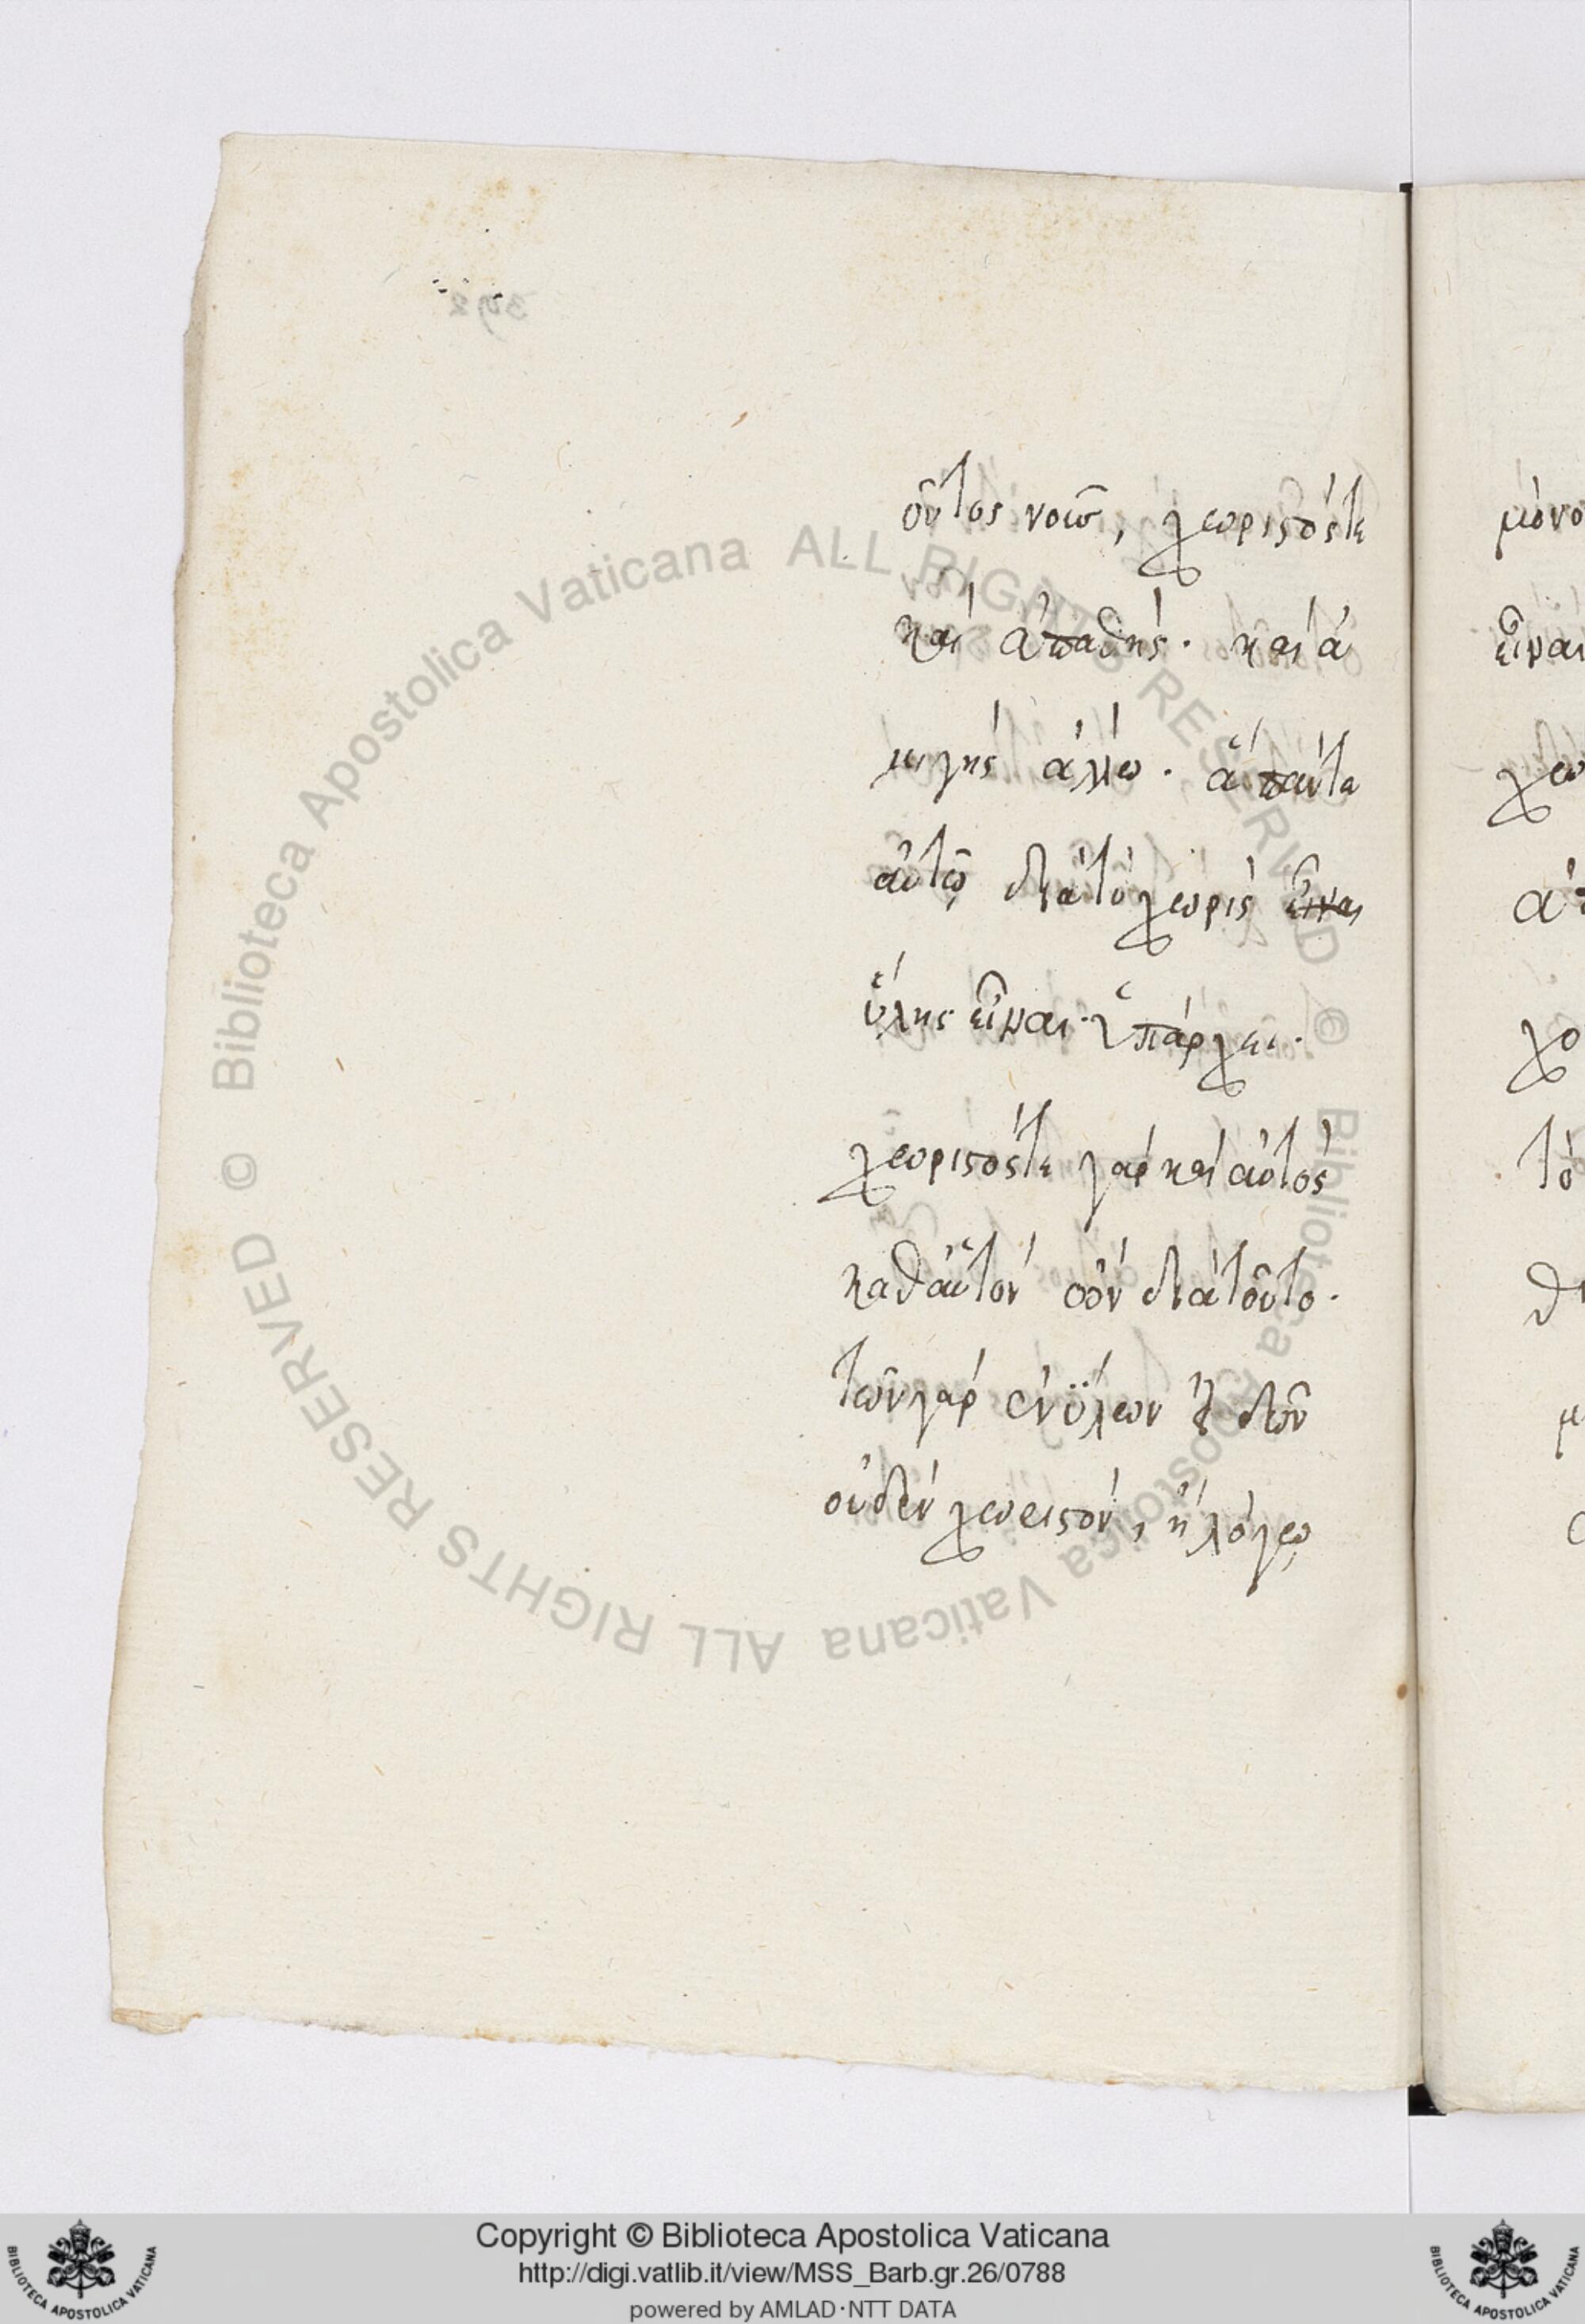 οὗτος νοῦς, χωριστός τε
καὶ ἀπαθής. καὶ ἀ
μιγὴς ἄλλω. ἅπαντα
αὐτῷ διὰ τὸ χωρὶς εἶναι
ὕλης εἶναι ὑπάρχει.
χωριστός τε γὰρ καὶ αὐτὸς
καθ' αὑτὸν ὂν διὰ τοῦτο.
τῶν γὰρ ἐνΰλων εἰδῶν
οὐδὲν χωριστόν, ἢ λόγῳ
μόνο
εἶναι
χω
χο
τὸ
392
Biblioteca Apostolica Vaticana ALL RIGHTS RESERVED ©
Biblioteca Apostolica Vaticana ALL RIGHTS RESERVED ©
Copyright © Biblioteca Apostolica Vaticana
http://digi.vatlib.it/view/MSS_Barb.gr.26/0788
powered by AMLAD·NTT DATA
BIBLIOTECA APOSTOLICA VATICANA
BIBLIOTECA APOSTOLICA VATICANA